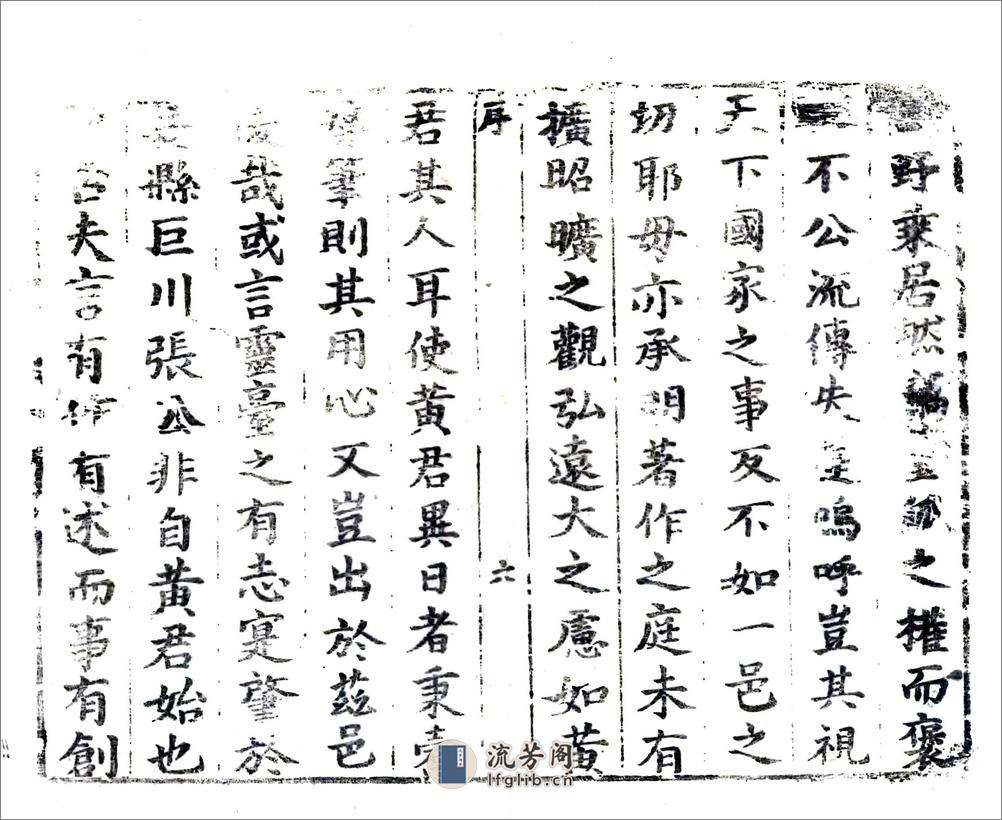 野乘居然竊 之權而褒
不公流傳失 嗚呼豈其視
天下國家之事反不如一邑之
切耶毋亦承明著作之庭未有
擴昭曠之觀弘遠大之慮如黃
序 六
君其人耳使黃君異日者秉
筆則其用心又豈出於茲邑
哉或言靈臺之有志寔肇於
縣巨川張公非自黃君始也
夫言有作有述而事有創
流芳阁
lfglib.cn